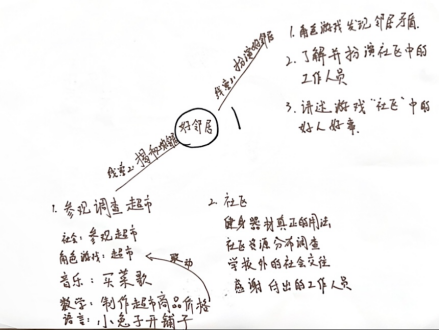 线索1: 扮演的邻居
1. 角色游戏发现邻居矛盾.
2. 了解并扮演社区中的
工作人员
3. 讲述游戏“社区”中的
好人好事.
好邻居
线索2:
1. 参观调查超市
社会: 参观超市
角色游戏: 超市
联动
音乐: 买菜歌
数学: 制作超市商品价格
语言: 小兔子开铺子
2. 社区
健身器材真正的用法
社区资源分布调查
学校外的社会交往
感谢付出的工作人员